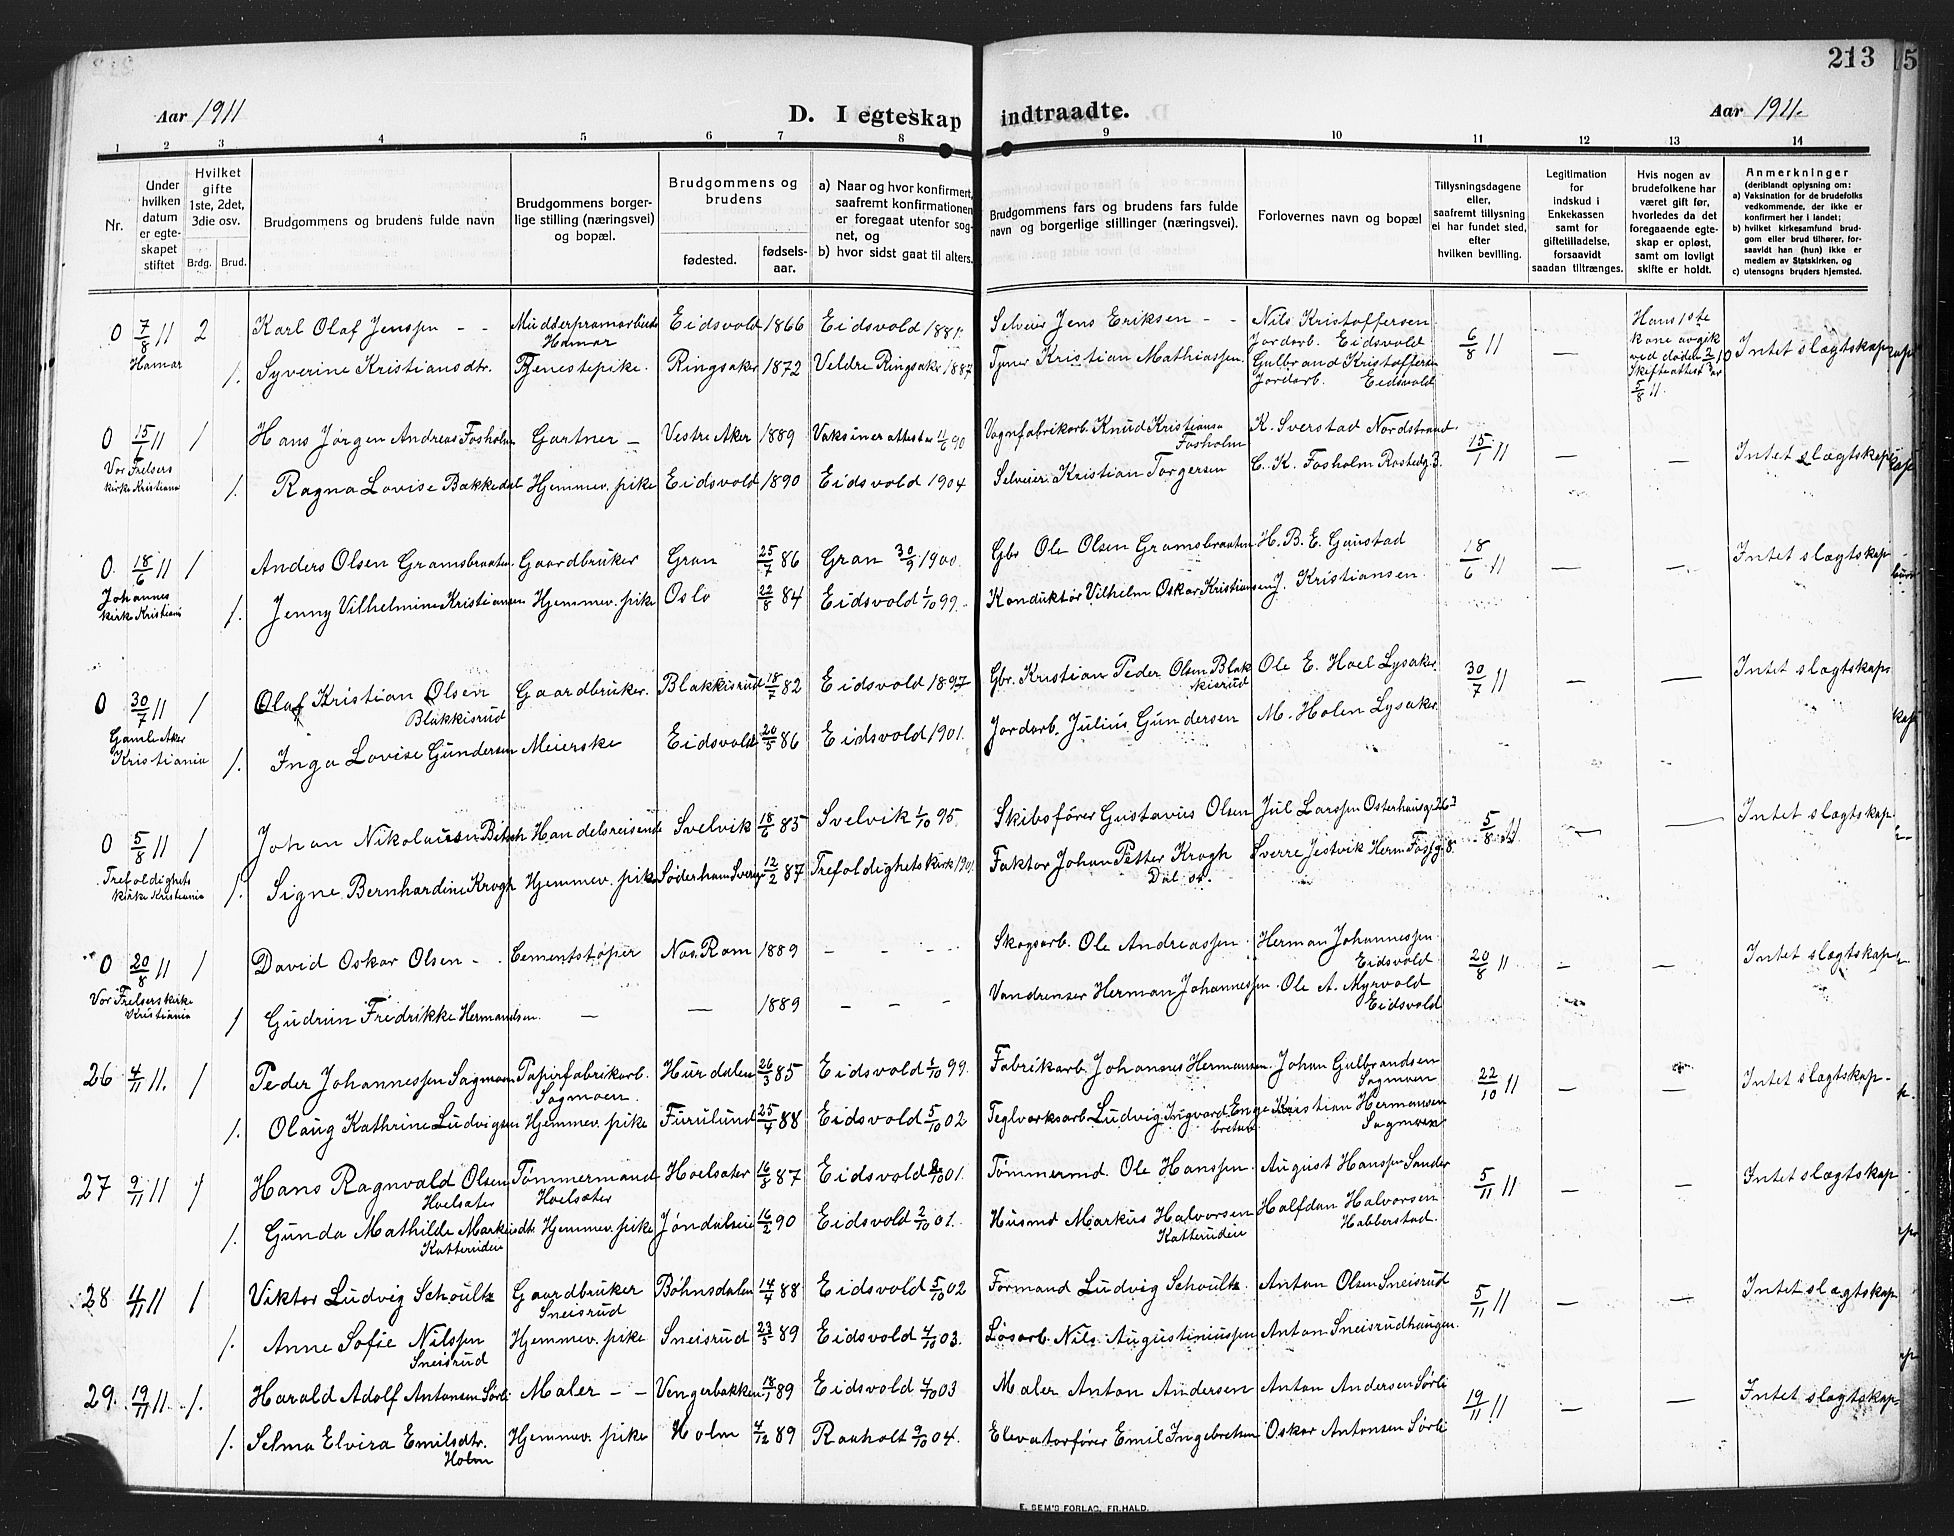 213
Aar 1911
D. I egteskap indtraadte.
Aar 1911.
1 2 3 4 5 6 7 8 9 10 11 12 13 14
Nr.
Under hvilken datum er egteskapet stiftet
Hvilket gifte 1ste, 2det, 3die osv.
Brdg. Brud.
Brudgommens og brudens fulde navn
Brudgommens borgerlige stilling (næringsvei) og bopæl.
Brudgommens og brudens
fødested.
fødselsaar.
a) Naar og hvor konfirmert, saafremt konfirmationen er foregaat utenfor sognet, og
b) hvor sidst gaat til alters.
Brudgommens fars og brudens fars fulde navn og borgerlige stillinger (næringsvei).
Forlovernes navn og bopæl
Tillysningsdagene eller, saafremt tillysning ei har fundet sted, efter hvilken bevilling.
Legitimation for indskud i Enkekassen samt for giftetilladelse, forsaavidt saadan tiltrænges.
Hvis nogen av brudefolkene har været gift før, hvorledes da det foregaaende egteskap er opløst, samt om lovligt skifte er holdt.
Anmerkninger (deriblandt oplysning om:
a) Vaksination for de brudefolks vedkommende, der ikke er konfirmert her i landet;
b) hvilket kirkesamfund brudgom eller brud tilhører, forsaavidt han (hun) ikke er medlem av Statskirken, og
c) utensogns bruders hjemsted.
0 7/8 11 2 Karl Olaf Jenssen - - Mudderpramarbeid. Hamar Eidsvold 1866 Eidsvold 1881. Selveier Jens Eriksen - - Nils Kristoffersen Jordarb. Eidsvold 6/8 11 — Hans 1ste kone avgik ved døden Skifteattest 5/8 11. Intet slægtskap
Hamar 1. Syverine Kristiansdtr. Tjenestepike. Ringsaker 1872 Veldre Ringsaker 1887 Kristian Mathiassen. Gulbrand Kristoffersen Jordarb. Eidsvold
0 15/1 11 1 Hans Jørgen Andreas Fosholm Gartner — Vestre Aker 1889 Vaksinerattest 90 Vognfabrikarb. Knud Kristiansen Fosholm K. Sverstad Nordstrand. 15/1 11 — — Intet slægtskap
Vor Frelsers kirke Kristiania 1. Ragna Lovise Bækkedal Hjemmev. pike Eidsvold 1890 Eidsvold 1904 Selveier. Kristian Torgersen C. K. Fosholm Rostedg. 3.
0. 18/6 11 1 Anders Olsen Gramsbraaten. Gaardbruker Gran 25/7 86 Gran 30/9 1900 Gbr Ole Olsen Gramsbraaten H. B. E. Gaustad 18/6 11 — — Intet slægtskap
Johannes kirke Kristiania 1. Jenny Vilhelmine Kristiansen Hjemmev. pike Oslo 22/8 84 Eidsvold 1/10 99. Konduktør Vilhelm Oskar Kristiansen J. Kristiansen.
0 30/7 11 1 Olaf Kristian Olsen Blakkisrud Gaardbruker. Blakkisrud 18/7 82 Eidsvold 1897 Gbr. Kristian Peder Olsen Blakkisrud Ole E. Hoel Lysaker 30/7 11 — — Intet slægtskap
Gamle Aker Kristiania 1. Inga Lovise Gundersen Meierske Eidsvold 20/5 86 Eidsvold 1901. Jordarb. Julius Gundersen M. Holen Lysaker
0 5/8 11 1 Johan Nikolaisen Handelsreisende Svelvik 18/6 83 Svelvik 1/10 95. Skibsfører Gustavus Olsen Jul Larssen Osterhausg. 26 5/8 11 — — Intet slægtskap
Trefoldighets kirke Kristiania 1. Signe Bernhardine Krogh Hjemmev. pike Søderham Sverige 12/2 87 Trefoldighets kirk 1901. Faktor Johan Petter Krogh Dal st. Sverre Jestvik Herm Fossg. 8.
0 20/8 11 1 David Oskar Olsen - - Cementstøper Nas. Rom 1889 — - — - Skogsarb. Ole Andreassen Herman Johannessen. Eidsvold 20/8 11 — — Intet slægtskap
Vor Frelserskirke Kristiania 1 Gudrun Fredrikke Hermandsen. — — 1889 — — — Herman Johannessen. Ole A. Myrvold Eidsvold
26 4/11 11. 1 Peder Johannessen Sagmoen Papirfabrikarb. Sagmoen. Hurdalen 26/3 85 Eidsvold 1/10 99. Fabrikarb. Johannes Hermansen. Johan Gulbrandsen Sagmoen 22/10 11 — — Intet slægtskap-
1. Olaug Kathrine Ludvigsen Hjemmev. pike Furulund 25/4 88 Eidsvold 5/10 02 Teglverksarb. Ludvig Ingvard Engebretsen Kristian Hermansen Sagmoen
27 9/11 11 1 Hans Ragnvald Olsen Hoelsæter Tømmermand Hoelsæter Hoelsæter 16/8 87 Eidsvold 01. Tømmermd. Ole Hanssen. August Hanssen Sander 5/11 11 — — Intet slægtskap
1. Gunda Mathilde Markusdtr. Katterudeie Hjemmev. pike Jøndaleie 16/2 90 Eidsvold 2/10 01. Husmd Markus Halvorsen Katterudeie Halfdan Halvorsen Habberstad.
28 4/11 11 1 Viktor Ludvig Schoultz Gaardbruker Sneisrud Bøhnsdalen 14/7 88 Eidsvold 5/10 02 Formand Ludvig Schoultz Anton Olsen Sneisrud 5/11 11 — — Intet slægtskap
1. Anne Sofie Nilssen Sneisrud Hjemmev. pike Sneisrud 23/5 89 Eidsvold 4/10 03. Løsarb. Nils Augustinussen Anton Sneisrudhaugen.
29. 19/11 11. 1. Harald Adolf Antonsen Sørli Maler - - Vengerbakken 18/1 89 Eidsvold 4/10 03 Maler Anton Andersen Anton Andersen Sørli 19/11 11 — — Intet slægtskap
1. Selma Elvira Emilsdtr. Holm Hjemmev. pike Holm 4/12 89 Raaholt 9/10 04. Elevatorfører Emil Ingebretsen Oskar Antonsen Sørli
E. SEM'S FORLAG, FR.HALD.